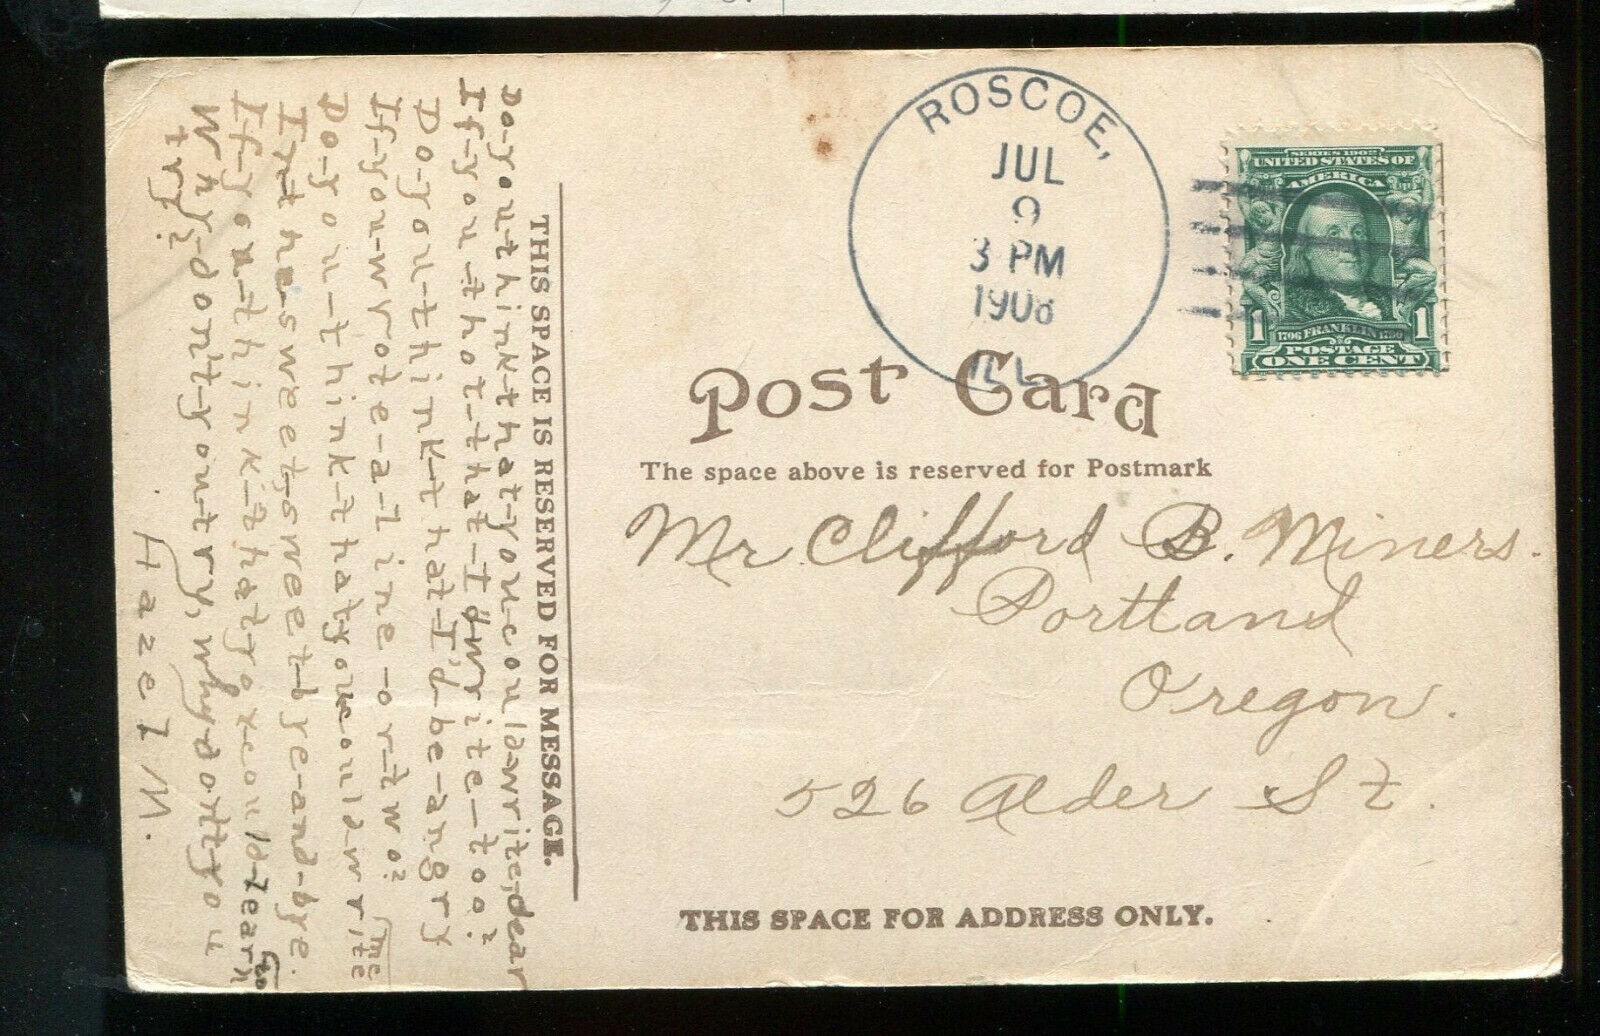 ROSCOE,
JUL
9
3 PM
1908
ILL.
SERIES 1902
UNITED STATES OF
AMERICA
1706 FRANKLIN 1790
1 1
POSTAGE
ONE CENT
Post Card
The space above is reserved for Postmark
Mr Clifford B. Miners.
Portland
Oregon.
526 Alder St.
THIS SPACE FOR ADDRESS ONLY.
THIS SPACE IS RESERVED FOR MESSAGE.
Do-you-think-that-you-could-write, dear
If-you-thot-that-I'd write-too?
Do-you-think-that-I'd-be-angry
If-you-wrote-a-line-or-two?
Do-you-think-that you could-write me
In-the-sweet-sweet-bye-and-bye.
If-you-think-that you could-learn to
Why-dont-you-try, why-dont-you
try?
Hazel M.